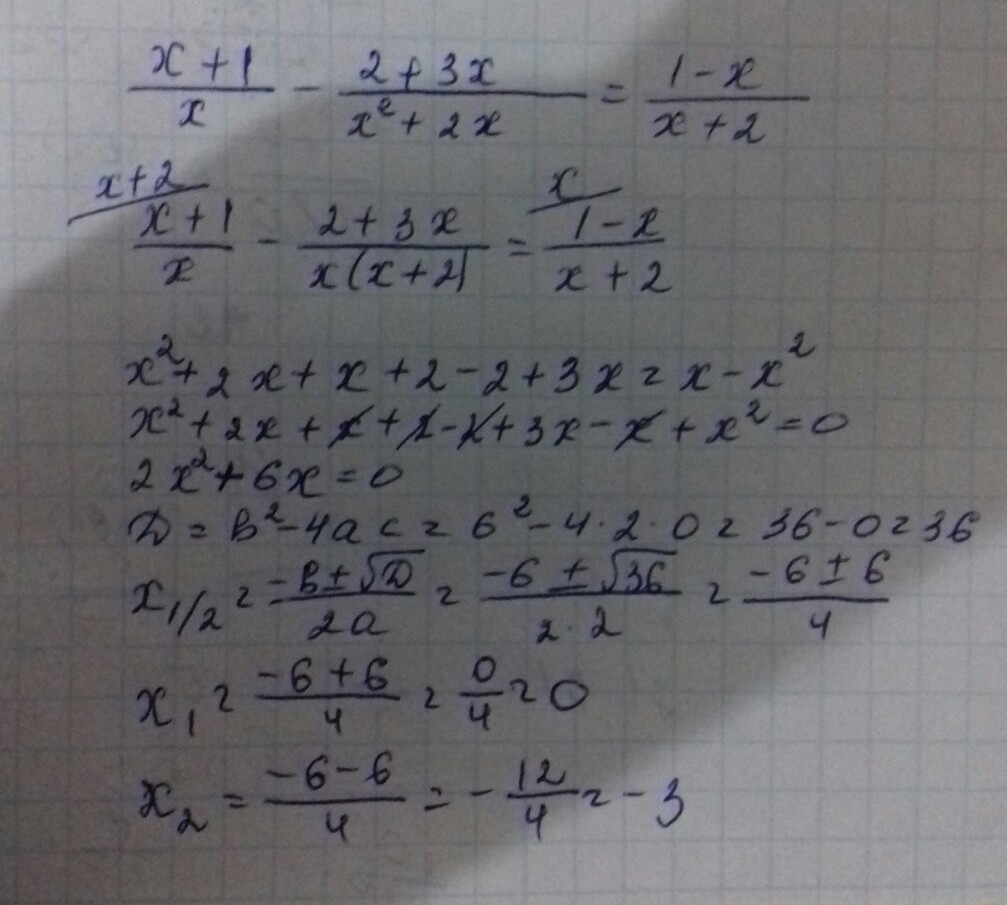 (x+1)/x - (2+3x)/(x²+2x) = (1-x)/(x+2)
x+2/ (x+1)/x - (2+3x)/(x(x+2)) = x/ (1-x)/(x+2)
x²+2x+x+2-2+3x=x-x²
x²+2x+x+2-2+3x-x+x²=0
2x²+6x=0
D=b²-4ac=6²-4·2·0=36-0=36
x₁/₂=(-b±√D)/2a=(-6±√36)/(2·2)=(-6±6)/4
x₁=(-6+6)/4=0/4=0
x₂=(-6-6)/4=-12/4=-3